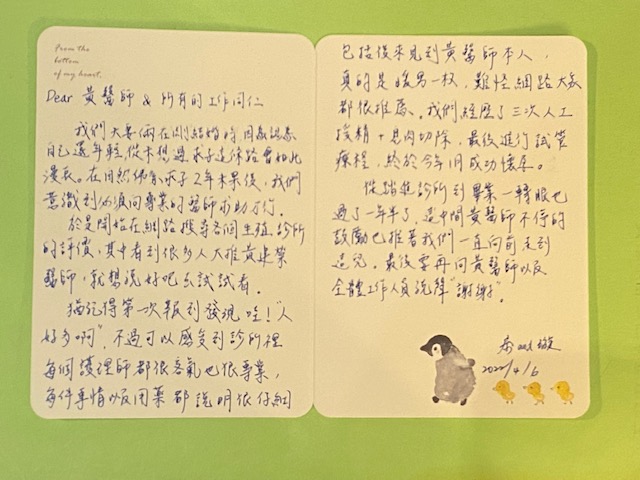 From the
bottom
of my heart.
Dear 黃醫師 & 所有的工作同仁
我們夫妻倆在剛結婚時因為認為
自己還年輕,從未想過求子這條路會如此
漫長。在自然佛系求子2年未果後,我們
意識到必須向專業的醫師求助才行。
於是開始在網路搜尋各個生殖診所
的評價,其中看到很多人大推黃建榮
醫師,就想說好吧去試試看。
猶記得第一次報到發現哇!"人
好多啊",不過可以感受到診所裡
每個護理師都很客氣也很專業,
每件事情以及用藥都說明很仔細
包括後來見到黃醫師本人,
真的是暖男一枚,難怪網路大家
都很推薦。我們經歷了三次人工
授精+息肉切除,最後進行試管
療程,終於今年1月成功懷孕。
從踏進診所到畢業一轉眼也
過了一年半了,這中間黃醫師不停的
鼓勵也推著我們一直向前走到
這兒,最後要再向黃醫師以及
全體工作人員說聲"謝謝"。
and 璇
2022/4/6